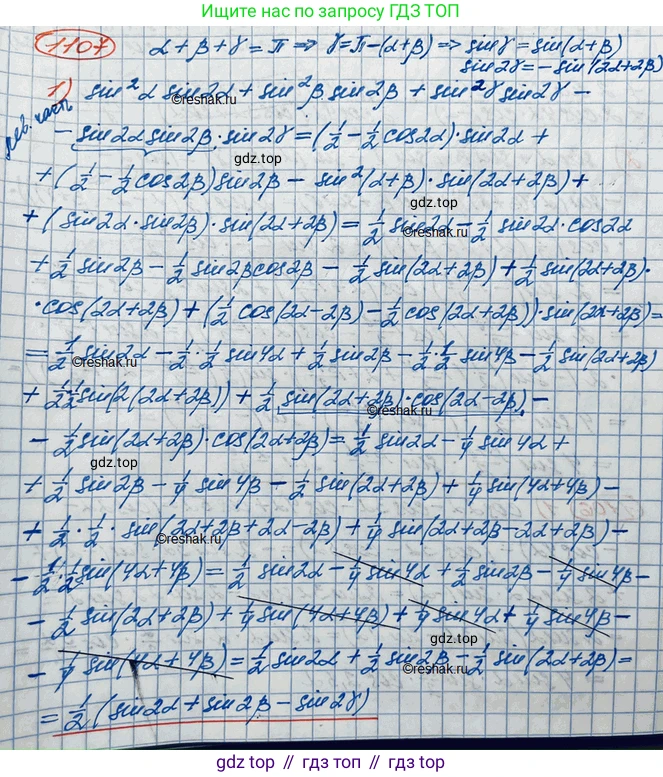 Ищите нас по запросу ГДЗ ТОП
1107 α+β+γ=π ⇒ γ=π-(α+β) ⇒ sinγ=sin(α+β)
sin2γ=-sin(2α+2β)
1) sin²α sin2α + sin²β sin2β + sin²γ sin2γ -
лев. часть
- sin2α sin2β · sin2γ = (1/2 - 1/2 cos2α) · sin2α +
+ (1/2 - 1/2 cos2β) sin2β - sin²(α+β) · sin(2α+2β) +
+ (sin2α · sin2β) · sin(2α+2β) = 1/2 sin2α - 1/2 sin2α · cos2α
+ 1/2 sin2β - 1/2 sin2βcos2β - 1/2 sin(2α+2β) + 1/2 sin(2α+2β) ·
· cos(2α+2β) + (1/2 cos(2α-2β) - 1/2 cos(2α+2β)) · sin(2α+2β) =
= 1/2 sin2α - 1/2 · 1/2 sin4α + 1/2 sin2β - 1/2 · 1/2 sin4β - 1/2 sin(2α+2β)
+ 1/2 · 1/2 sin(2(2α+2β)) + 1/2 sin(2α+2β) · cos(2α-2β) -
- 1/2 sin(2α+2β) · cos(2α+2β) = 1/2 sin2α - 1/4 sin4α +
+ 1/2 sin2β - 1/4 sin4β - 1/2 sin(2α+2β) + 1/4 sin(4α+4β) -
+ 1/2 · 1/2 · sin(2α+2β+2α-2β) + 1/4 sin(2α+2β-2α+2β) -
- 1/2 · 1/2 sin(4α+4β) = 1/2 sin2α - 1/4 sin4α + 1/2 sin2β - 1/4 sin4β -
- 1/2 sin(2α+2β) + 1/4 sin(4α+4β) + 1/4 sin4α + 1/4 sin4β -
- 1/4 sin(4α+4β) = 1/2 sin2α + 1/2 sin2β - 1/2 sin(2α+2β) =
= 1/2 (sin2α + sin2β - sin2γ)
©reshak.ru
gdz.top
gdz.top
©reshak.ru
©reshak.ru
©reshak.ru
gdz.top
©reshak.ru
gdz.top
©reshak.ru
gdz.top // гдз.топ // gdz.top // гдз.топ